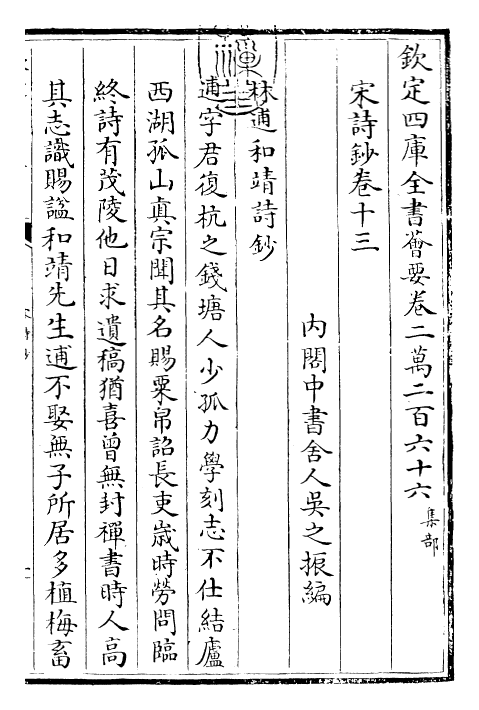 欽定四庫全書薈要卷二萬二百六十六 集部
宋詩鈔卷十三
内閣中書舍人吳之振編
林逋和靖詩鈔
逋字君復杭之錢塘人少孤力學刻志不仕結廬
西湖孤山真宗聞其名賜粟帛詔長吏歲時勞問臨
終詩有茂陵他日求遺稿猶喜曾無封禪書時人高
其志識賜諡和靖先生逋不娶無子所居多植梅畜